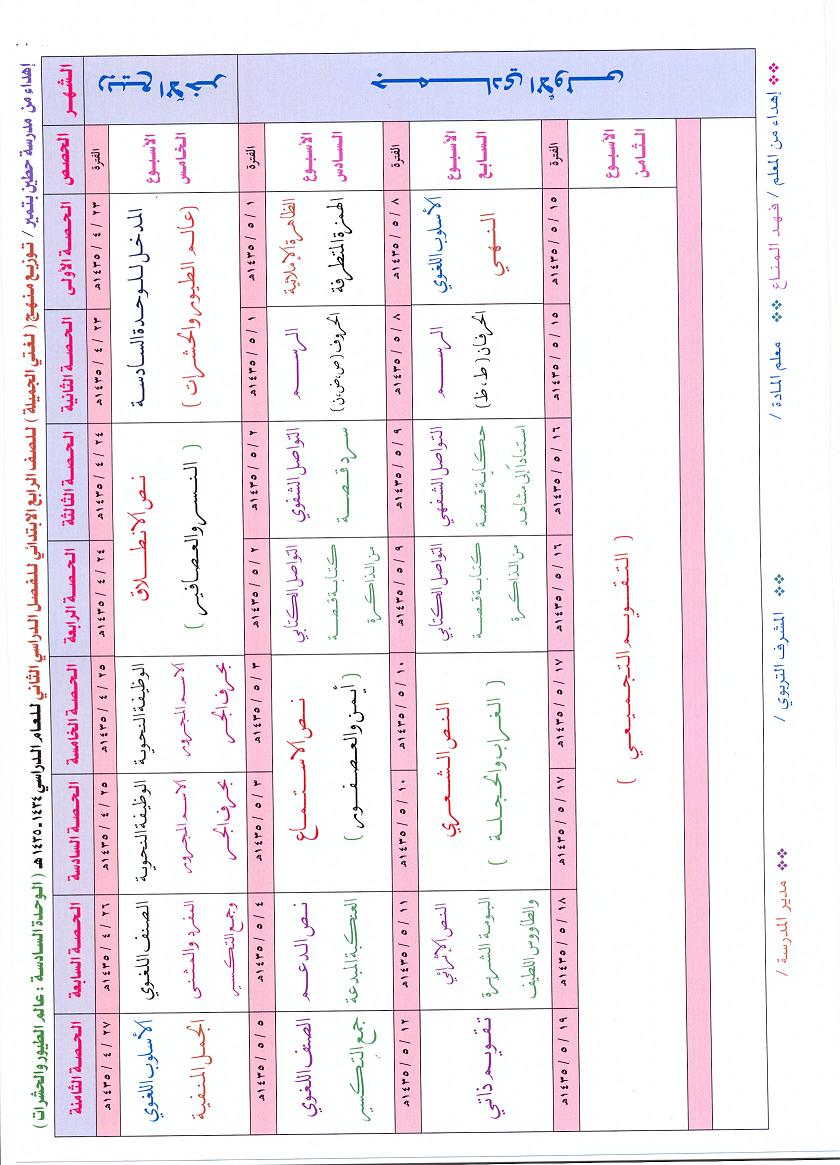 إهداء من مدرسة حطين بتمير / توزيع منهج ( لغتي الجميلة ) للصف الرابع الابتدائي للفصل الدراسي الثاني للعام الدراسي ١٤٣٤-١٤٣٥ هـ ( الوحدة السادسة : عالم الطيور والحشرات )
الشهر
الحصص
الحصة الأولى
الحصة الثانية
الحصة الثالثة
الحصة الرابعة
الحصة الخامسة
الحصة السادسة
الحصة السابعة
الحصة الثامنة
ربيع الآخر
الفترة
٢٣ / ٤ / ١٤٣٥هـ
٢٣ / ٤ / ١٤٣٥هـ
٢٤ / ٤ / ١٤٣٥هـ
٢٤ / ٤ / ١٤٣٥هـ
٢٥ / ٤ / ١٤٣٥هـ
٢٥ / ٤ / ١٤٣٥هـ
٢٦ / ٤ / ١٤٣٥هـ
٢٧ / ٤ / ١٤٣٥هـ
الأسبوع
الخامس
المدخل للوحدة السادسة
( عالم الطيور والحشرات )
نص الانطلاق
( النسر والعصافير )
الوظيفة النحوية
الاسم المجرور
بحرف الجر
الوظيفة النحوية
الاسم المجرور
بحرف الجر
الصنف اللغوي
المفرد والمثنى
وجمع التكسير
الأسلوب اللغوي
الجمل المنفية
جمادى الأولى
الفترة
١ / ٥ / ١٤٣٥هـ
١ / ٥ / ١٤٣٥هـ
٢ / ٥ / ١٤٣٥هـ
٢ / ٥ / ١٤٣٥هـ
٣ / ٥ / ١٤٣٥هـ
٣ / ٥ / ١٤٣٥هـ
٤ / ٥ / ١٤٣٥هـ
٥ / ٥ / ١٤٣٥هـ
الأسبوع
السادس
الظاهرة الإملائية
الهمزة المتطرفة
الرسم
الحروف (ص،ض،ن)
التواصل الشفوي
سرد قصة
التواصل الكتابي
كتابة قصة
من الذاكرة
نص الاستماع
( أيمن والعصفور )
نص الدعم
العنكبة المبدعة
الصنف اللغوي
جمع التكسير
الفترة
٨ / ٥ / ١٤٣٥هـ
٨ / ٥ / ١٤٣٥هـ
٩ / ٥ / ١٤٣٥هـ
٩ / ٥ / ١٤٣٥هـ
١٠ / ٥ / ١٤٣٥هـ
١٠ / ٥ / ١٤٣٥هـ
١١ / ٥ / ١٤٣٥هـ
١٢ / ٥ / ١٤٣٥هـ
الأسبوع
السابع
الأسلوب اللغوي
النهي
الرسم
الحرفان (ط،ظ)
التواصل الشفهي
حكاية قصة
استناداً إلى مشاهد
التواصل الكتابي
كتابة قصة
من الذاكرة
النص الشعري
( الغراب والحجلة )
النص الإثرائي
البومة الشريرة
والطاووس اللطيف
تقويم ذاتي
الفترة
١٥ / ٥ / ١٤٣٥هـ
١٥ / ٥ / ١٤٣٥هـ
١٦ / ٥ / ١٤٣٥هـ
١٦ / ٥ / ١٤٣٥هـ
١٧ / ٥ / ١٤٣٥هـ
١٧ / ٥ / ١٤٣٥هـ
١٨ / ٥ / ١٤٣٥هـ
١٩ / ٥ / ١٤٣٥هـ
الأسبوع
الثامن
( التقويم التجميعي )
إهداء من المعلم / فهد المناع
معلم المادة /
المشرف التربوي /
مدير المدرسة /